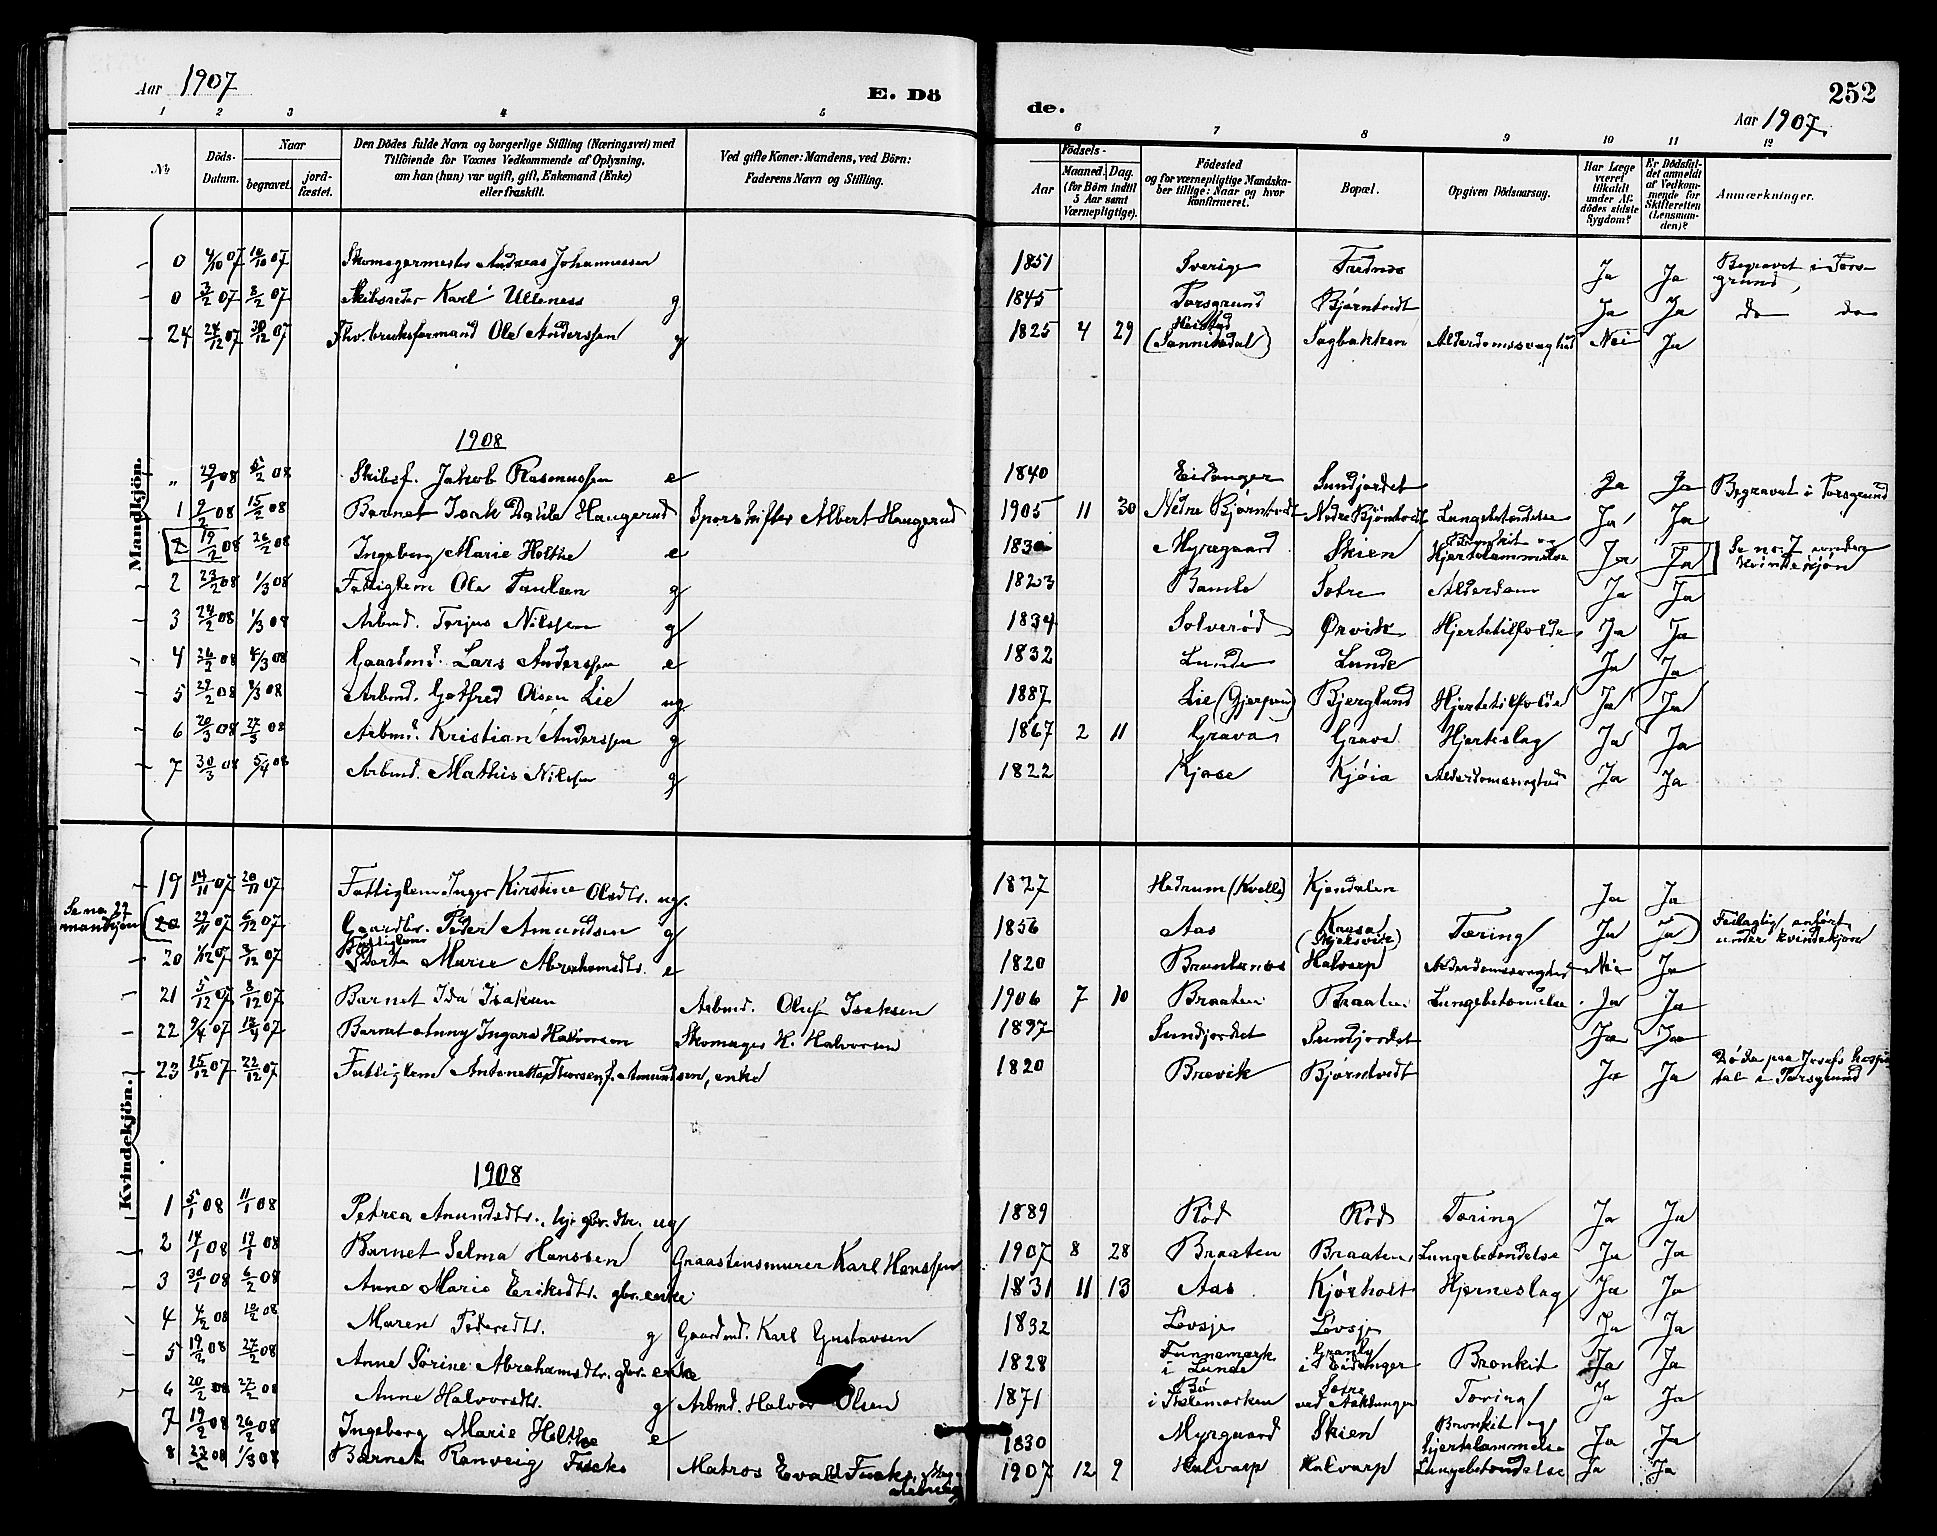 Aar 1907
E. Dö
de.
252
Aar 1907.
1 2 3 4 5 6 7 8 9 10 11 12
No
Döds-Datum.
Naar
begravet.
jord-fæstet.
Den Dödes fulde Navn og borgerlige Stilling (Næringsvei) med
Tilföiende for Voxnes Vedkommende af Oplysning,
om han (hun) var ugift, gift, Enkemand (Enke)
eller fraskilt.
Ved gifte Koner: Mandens, ved Börn:
Faderens Navn og Stilling.
Födsels-
Aar
Maaned. Dag.
(for Börn indtil
5 Aar samt
Værnepligtige).
Födested
og for værnepligtige Mandska-
ber tillige: Naar og hvor
konfirmeret.
Bopæl.
Opgiven Dödsaarsag.
Har Læge
været
tilkaldt
under Af-
dödes sidste
Sygdom?
Er Dödsfal-
det anmeldt
af Vedkom-
mende for
Skifteretten
(Lensman-
den)?
Anmærkninger.
Mandkjön.
0 4/10 07 10/10 07 Skomagermester Andreas Johannessen 1851 Sverige Frednes Ja Ja Begravet i Pors-
grund,
0 3/2 07 8/2 07 Skibsreder Karl Ulleness g 1845 Porsgrund Bjørntvedt Ja Ja do do
24 24/12 07 30/12 07 Fhv. bruksformand Ole Anderssen g 1825 4 29 Heistad
(Sannikedal) Sagbakken Alderdomssvaghed Nei Ja
1908
" 29/1 08 5/2 08 Skibsf. Jakob Rasmussen e 1840 Eidanger Sundjordet Ja Ja Begravet i Porsgrund
1 9/2 08 15/2 08 Barnet Isak Haugerud Sporskifter Albert Haugerud 1905 11 30 Nedre Bjørntvedt Nedre Bjørntvedt Lungebetendelse Ja Ja
2 19/2 08 26/2 08 Ingeborg Marie Holthe e 1830 Myrgaard Skien Bronkit og
Hjertelammelse Ja Ja Se no. 7 under
kvindekjøn
2 23/2 08 1/3 08 Fattiglem Ole Paulsen g 1823 Bamle Sætre Alderdom Ja Ja
3 24/2 08 1/3 08 Arbmd. Torjus Nilssen g 1834 Solverød Ørvik Hjertetilfælde Ja Ja
4 26/2 08 4/3 08 Gaardmd. Lars Anderssen e 1832 Lunde Lunde Ja Ja
5 29/2 08 9/3 08 Arbmd. Gotfred Olsen Lie ug 1887 Lie (Gjerpen) Bjerglund Hjertetilfælde Ja Ja
6 20/3 08 27/3 08 Arbmd. Kristian Anderssen g 1867 2 11 Grava Grava Hjerteslag Ja Ja
7 30/3 08 5/4 08 Arbmd. Mathis Nilssen g 1822 Kjose Kjøia Alderdomssvaghed Ja Ja
Kvindekjön.
19 14/11 07 20/11 07 Fattiglem Inger Kirstine Olsdtr. ug. 1827 Hedrum (Kvelle) Kjendalen Ja Ja
Se no. 22
mandkjøn
20 29/11 07 6/12 07 Gaardbr. Peder Amundsen g 1856 Aas Kaasa
(Skjelsvik) Tæring Ja Ja Feilagtig anført
under kvindekjøn
20 1/12 07 8/12 07 Fattiglem
Marie Abrahamsdtr. e 1820 Brunlanes Halvarp Alderdomssvaghed Nei Ja
21 5/12 07 8/12 07 Barnet Ida Isaksen Arbmd. Oluf Isaksen 1906 7 10 Braaten Braaten Lungebetendelse Ja Ja
22 9/4 07 14/4 07 Barnet Anny Ingara Halvorsen Skomager H. Halvorsen 1897 Sundjordet Sundjordet Ja Ja
23 15/12 07 22/12 07 Fattiglem Antonette Thorsen f. Amundsen, enke 1820 Brevik Bjørntvedt Ja Ja Døde paa Josefs hospi-
tal i Porsgrund
1908
1 5/1 08 11/1 08 Petrea Amundsdtr., hj. gbr. dtr. ug 1889 Rød Rød Tæring Ja Ja
2 14/1 08 19/1 08 Barnet Selma Hanssen Graastensmurer Karl Hanssen 1907 8 28 Braaten Braaten Lungebetendelse Ja Ja
3 30/1 08 6/2 08 Anne Marie Eriksdtr. gbr. enke 1831 11 13 Aas Kjørholt Hjerneslag Ja Ja
4 4/2 08 10/2 08 Maren Pedersdtr. g Gaardmd. Karl Gustavsen 1832 Løvsje Løvsje Ja Ja
5 19/2 08 27/2 08 Anne Sørine Abrahamsdtr. gbr. enke 1828 Funnemark
i Lunde Granly
i Eidanger Bronkit Ja Ja
6 20/2 08 27/2 08 Anne Halvorsdtr. g Arbmd. Halvor Olsen 1871 Bø
i Thelemarken Sætre
ved Tæring Ja Ja
7 19/2 08 26/2 08 Ingeborg Marie Holthe e 1830 Myrgaard Skien Bronkit og
Hjertelammelse Ja Ja
8 23/2 08 1/3 08 Barnet Ranveig Matros Evald 1907 12 9 Halvarp Halvarp Lungebetendelse Ja Ja